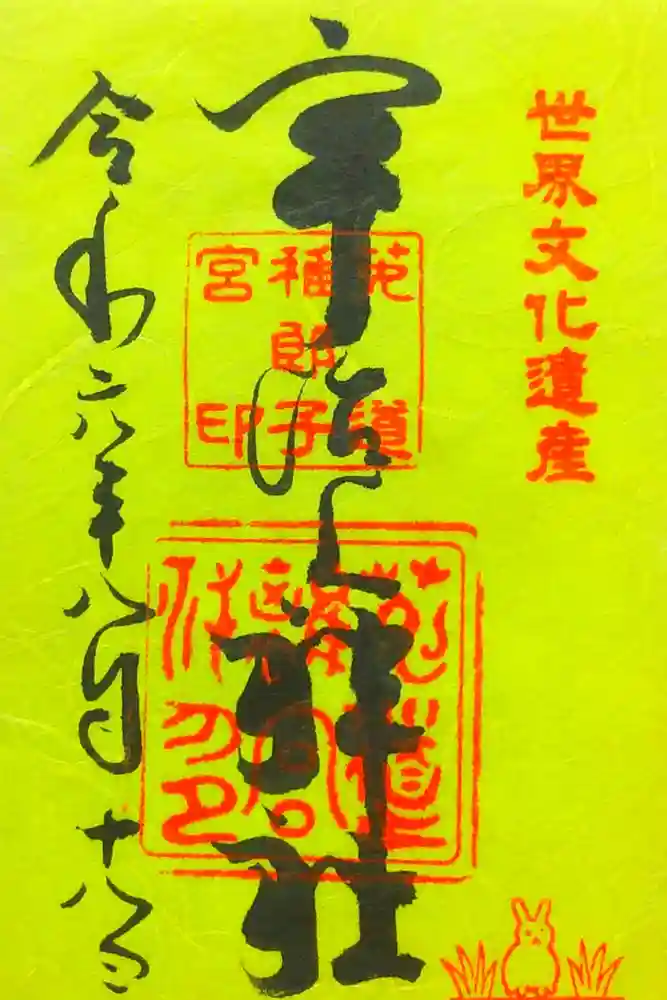 世界文化遺産
宇治上神社
菟道
稚郎子
宮印
令和六年八月十八日